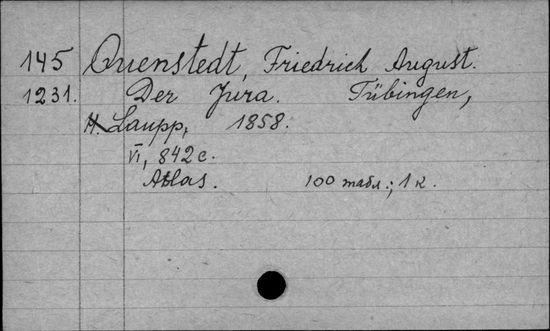 145 Quenstedt, Friedrich August.
1231. Der Jura. Tübingen,
H. Laupp, 1858.
VI, 842 с.
Atlas. 100 табл.; 1 к.